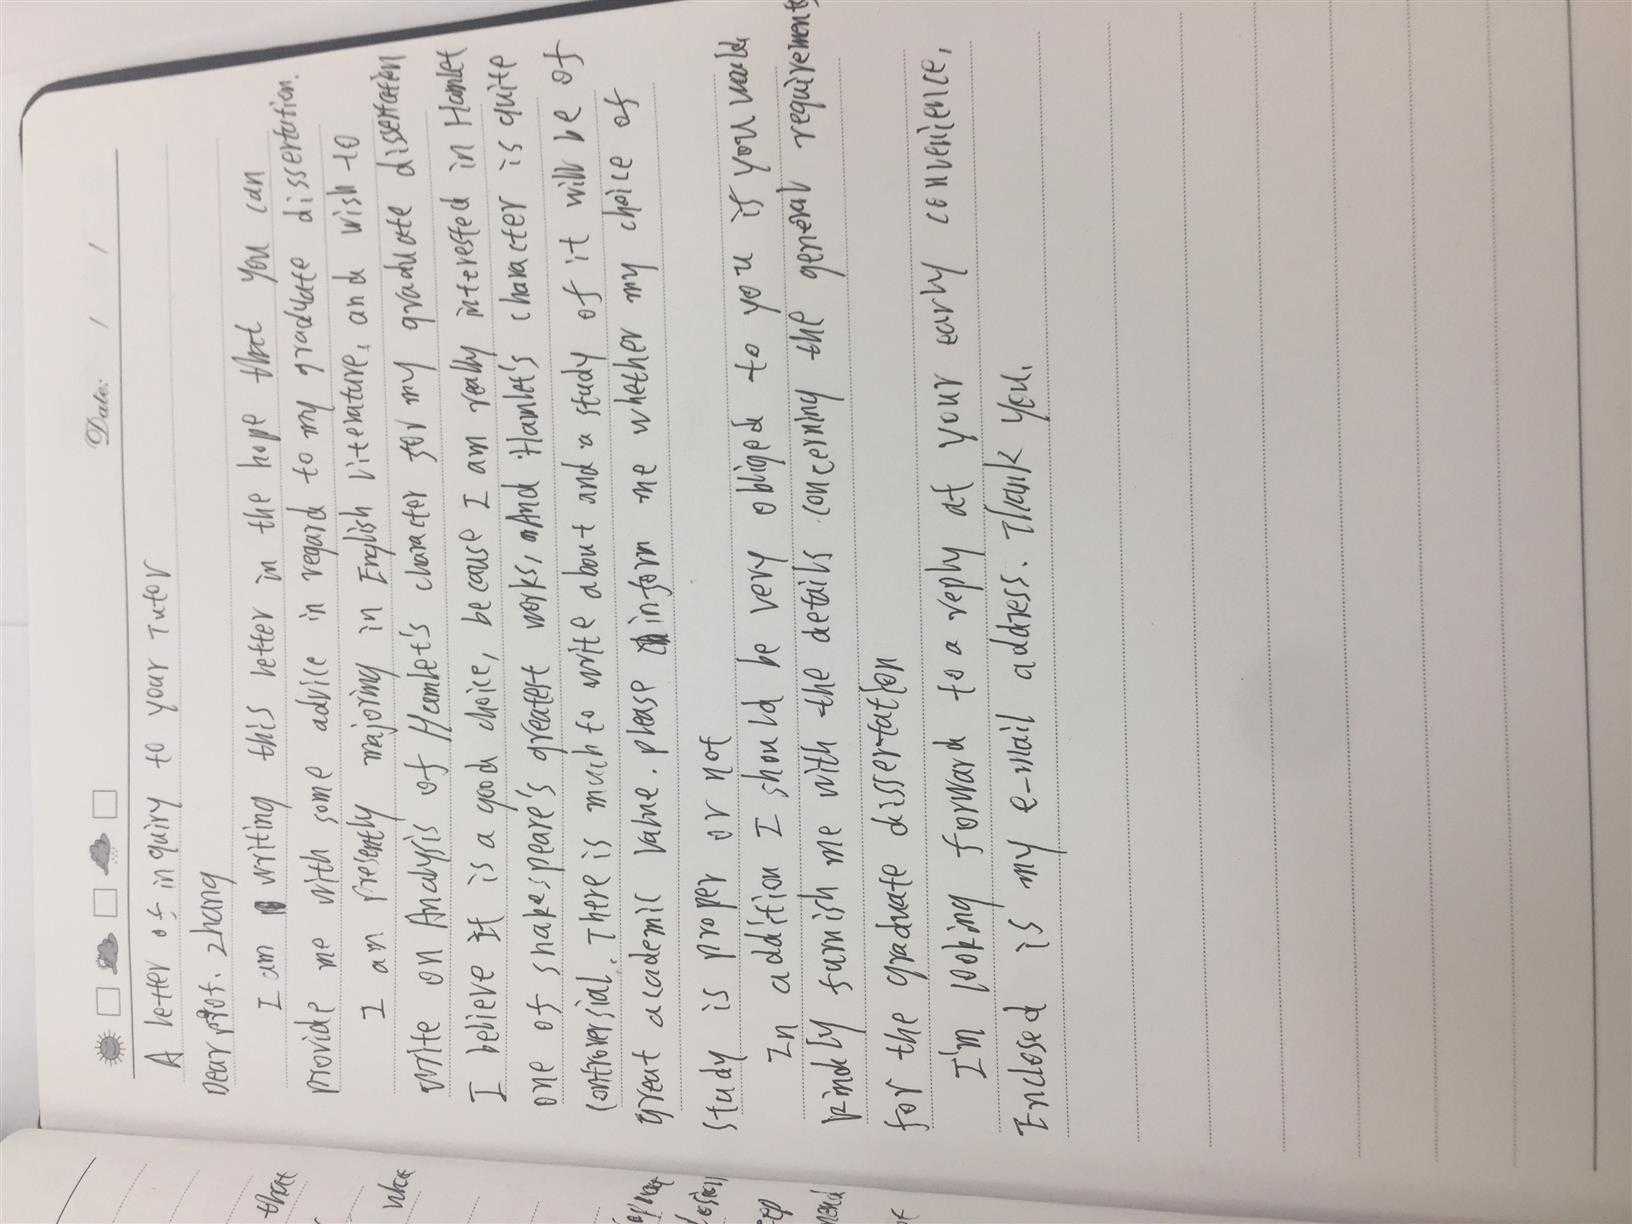 Date: / /
A letter of inquiry to your Tutor
Dear prof. Zhang
I am writing this letter in the hope that you can
provide me with some advice in regard to my graduate dissertation.
I am presently majoring in English literature, and wish to
write on Analysis of Hamlet's character for my graduate dissertation
I believe It is a good choice, because I am really interested in Hamlet
one of shakespeare's greatest works, And Hamlet's character is quite
controversial. There is much to write about and a study of it will be of
great academic value. please inform me whether my choice of
study is proper or not
In addition I should be very obliged to you if you would
kindly furnish me with the details concerning the general requirements
for the graduate dissertation
I'm looking forward to a reply at your early convenience,
Enclosed is my e-mail address. Thank you.
that